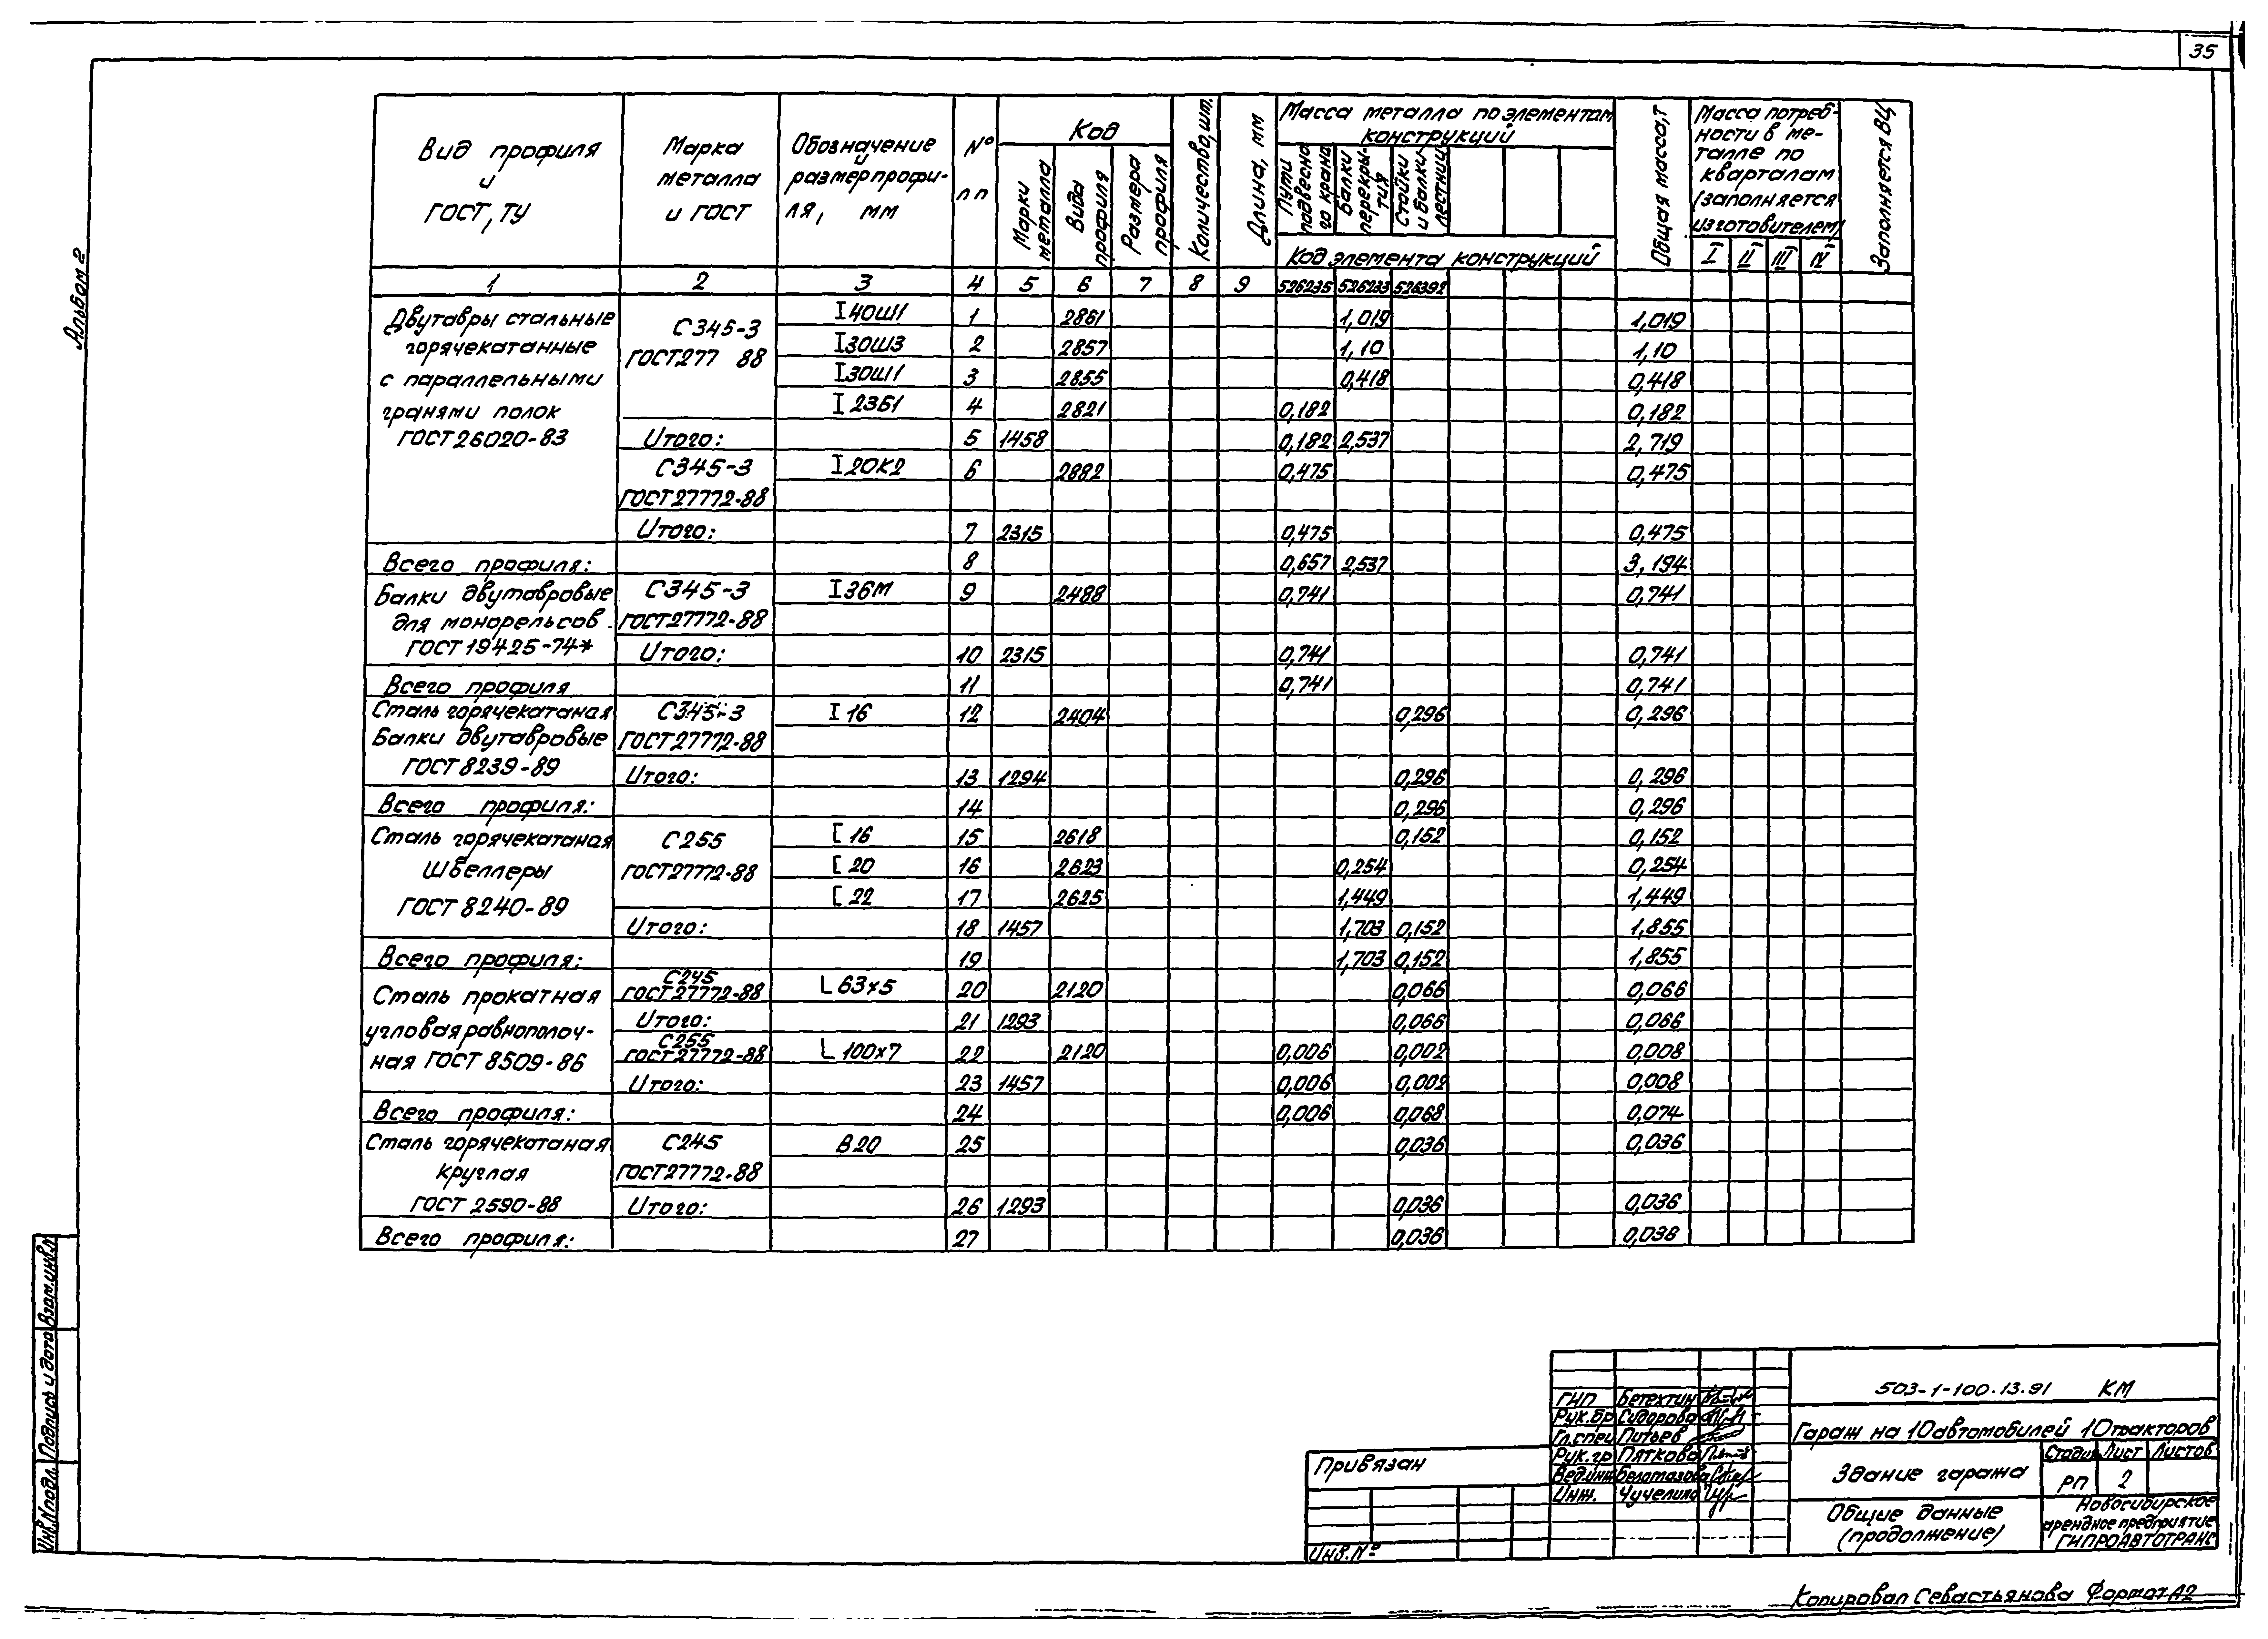 35
Альбом 2
Вид профиля и ГОСТ, ТУ
Марка металла и ГОСТ
Обозначение и размер профиля, мм
№ п п
Код
Марки металла
Вида профиля
Размера профиля
Количество, шт.
Длина, мм
Масса металла по элементам конструкций
Пути подвесного крана
Балки перекрытия
Стойки и балки лестниц
Код элемента конструкций
Общая масса, т
Масса потребности в металле по кварталам (заполняется изготовителем)
I II III IV
Заполняется ВЦ
1 2 3 4 5 6 7 8 9 526235 526233 526392
Двутавры стальные горячекатанные с параллельными гранями полок ГОСТ 26020-83
С345-3 ГОСТ277 88
I 40Ш1 1 2861 1,019 1,019
I 30Ш3 2 2857 1,10 1,10
I 30Ш1 3 2855 0,418 0,418
I 23Б1 4 2821 0,182 0,182
Итого: 5 1458 0,182 2,537 2,719
С345-3 I 20К2 6 2882 0,475 0,475
ГОСТ27772-88
Итого: 7 2315 0,475 0,475
Всего профиля: 8 0,657 2,537 3,194
Балки двутавровые для монорельсов ГОСТ 19425-74*
С345-3 I 36М 9 2488 0,741 0,741
ГОСТ27772-88
Итого: 10 2315 0,741 0,741
Всего профиля 11 0,741 0,741
Сталь горячекатаная Балки двутавровые ГОСТ 8239-89
С345-3 I 16 12 2404 0,296 0,296
ГОСТ27772-88
Итого: 13 1294 0,296 0,296
Всего профиля: 14 0,296 0,296
Сталь горячекатаная Швеллеры ГОСТ 8240-89
С255 ГОСТ27772-88
[ 16 15 2618 0,152 0,152
[ 20 16 2623 0,254 0,254
[ 22 17 2625 1,449 1,449
Итого: 18 1457 1,703 0,152 1,855
Всего профиля: 19 1,703 0,152 1,855
Сталь прокатная угловая равнополочная ГОСТ 8509-86
С245 ГОСТ27772-88 L 63x5 20 2120 0,066 0,066
Итого: 21 1293 0,066 0,066
С255 ГОСТ27772-88 L 100x7 22 2120 0,006 0,002 0,008
Итого: 23 1457 0,006 0,002 0,008
Всего профиля: 24 0,006 0,068 0,074
Сталь горячекатаная круглая ГОСТ 2590-88
С245 В20 25 0,036 0,036
ГОСТ27772-88
Итого: 26 1293 0,036 0,036
Всего профиля: 27 0,036 0,036
Взам.инв.№
Подпись и дата
Инв.№подл.
Привязан
Инв.№
ГИП Бетехтин
Рук.бр Сидорова
Гл.спец Питьев
Рук.гр Пяткова
Вед.инж
Инж. Чучелина
503-1-100.13.91 КМ
Гараж на 10 автомобилей 10 тракторов
Здание гаража
Стадия Лист Листов
РП 2
Общие данные (продолжение)
Новосибирское
арендное предприятие
ГИПРОАВТОТРАНС
Копировал Севастьянова Формат А2